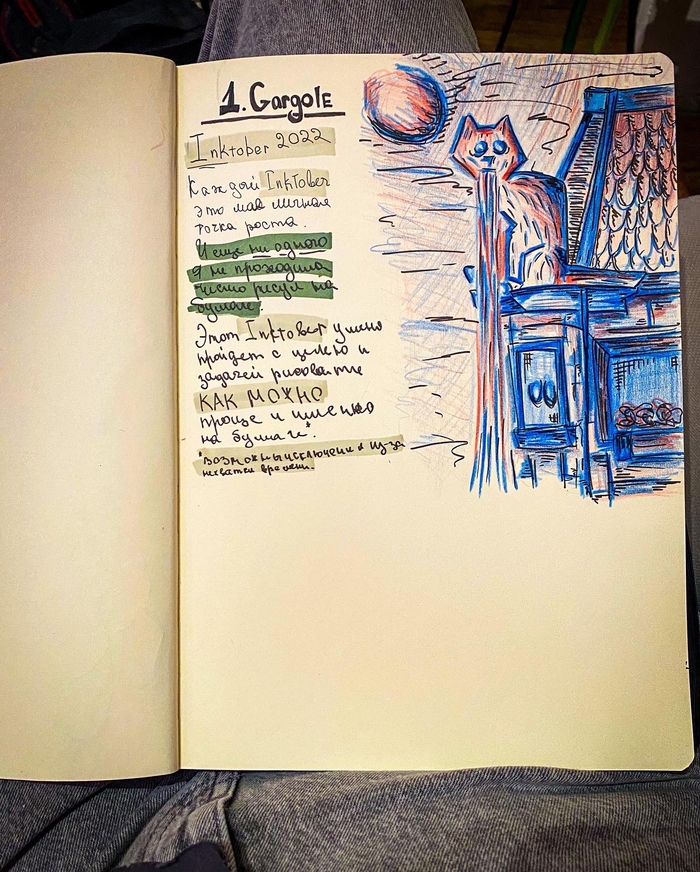 1. Gargole
Inktober 2022
Каждый Inktober
это моя личная
точка роста.
И еще ни одного
я не проходила
чисто рисуя на
бумаге.
Этот Inktober у меня
пройдет с целью и
задачей рисовать
КАК МОЖНО
проще и именно
на бумаге*.
*возможны исключения из-за
нехватки времени.